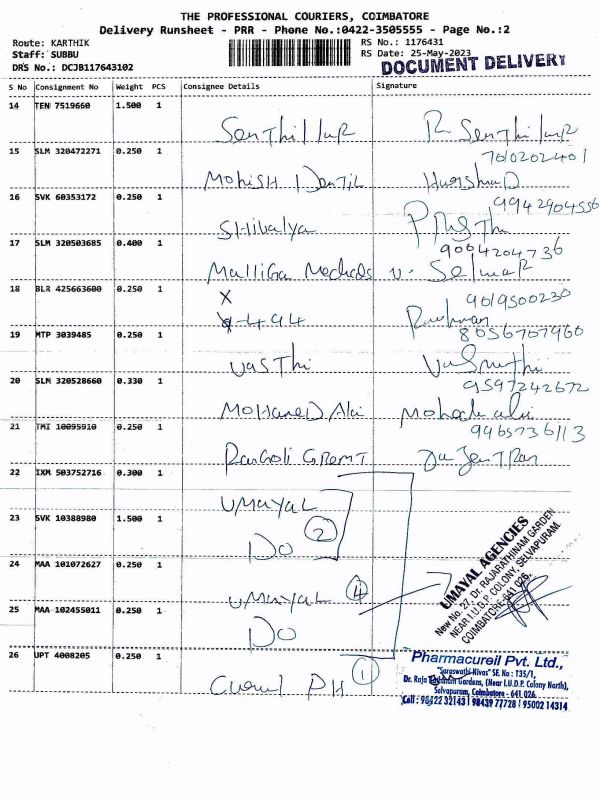 THE PROFESSIONAL COURIERS, COIMBATORE
Delivery Runsheet - PRR - Phone No.:0422-3505555 - Page No.:2
Route: KARTHIK RS No.: 1176431
Staff: SUBBU RS Date: 25-May-2023
DRS No.: DCJB117643102 DOCUMENT DELIVERY
S No Consignment No Weight PCS Consignee Details Signature
14 TEN 7519660 1.500 1
Senthil R Senthil
7010202401
15 SLM 320472271 0.250 1
Mohish Dental
9942904556
16 SVK 60353172 0.250 1
Shivalya
9004204736
17 SLM 320503685 0.400 1
Malliga Medicals V. Selma
9019500230
18 BLR 425663600 0.250 1
X
X-494
8056707960
19 MTP 3039485 0.250 1
Vasthi
9597242672
20 SLM 320528660 0.330 1
Mohamed Ali
9465736113
21 TMI 10095910 0.250 1
22 IXM 503752716 0.300 1
UMAYAL
23 SVK 10388980 1.500 1
DO 2
24 MAA 101072627 0.250 1
UMAYAL 4
25 MAA 102455011 0.250 1
DO
UMAYAL AGENCIES
New No. 27, Dr. RAJARATHINAM GARDEN
NEAR I.U.D.P. COLONY, SELVAPURAM,
COIMBATORE-641 026.
26 UPT 4008205 0.250 1
PH 1
Pharmacureil Pvt. Ltd.,
"Saraswathi Nivas" SF. No : 135/1,
Dr. Raja Gardens, (Near I.U.D.P. Colony North),
Selvapuram, Coimbatore - 641 026.
Cell : 98422 32143 98439 77728 95002 14314